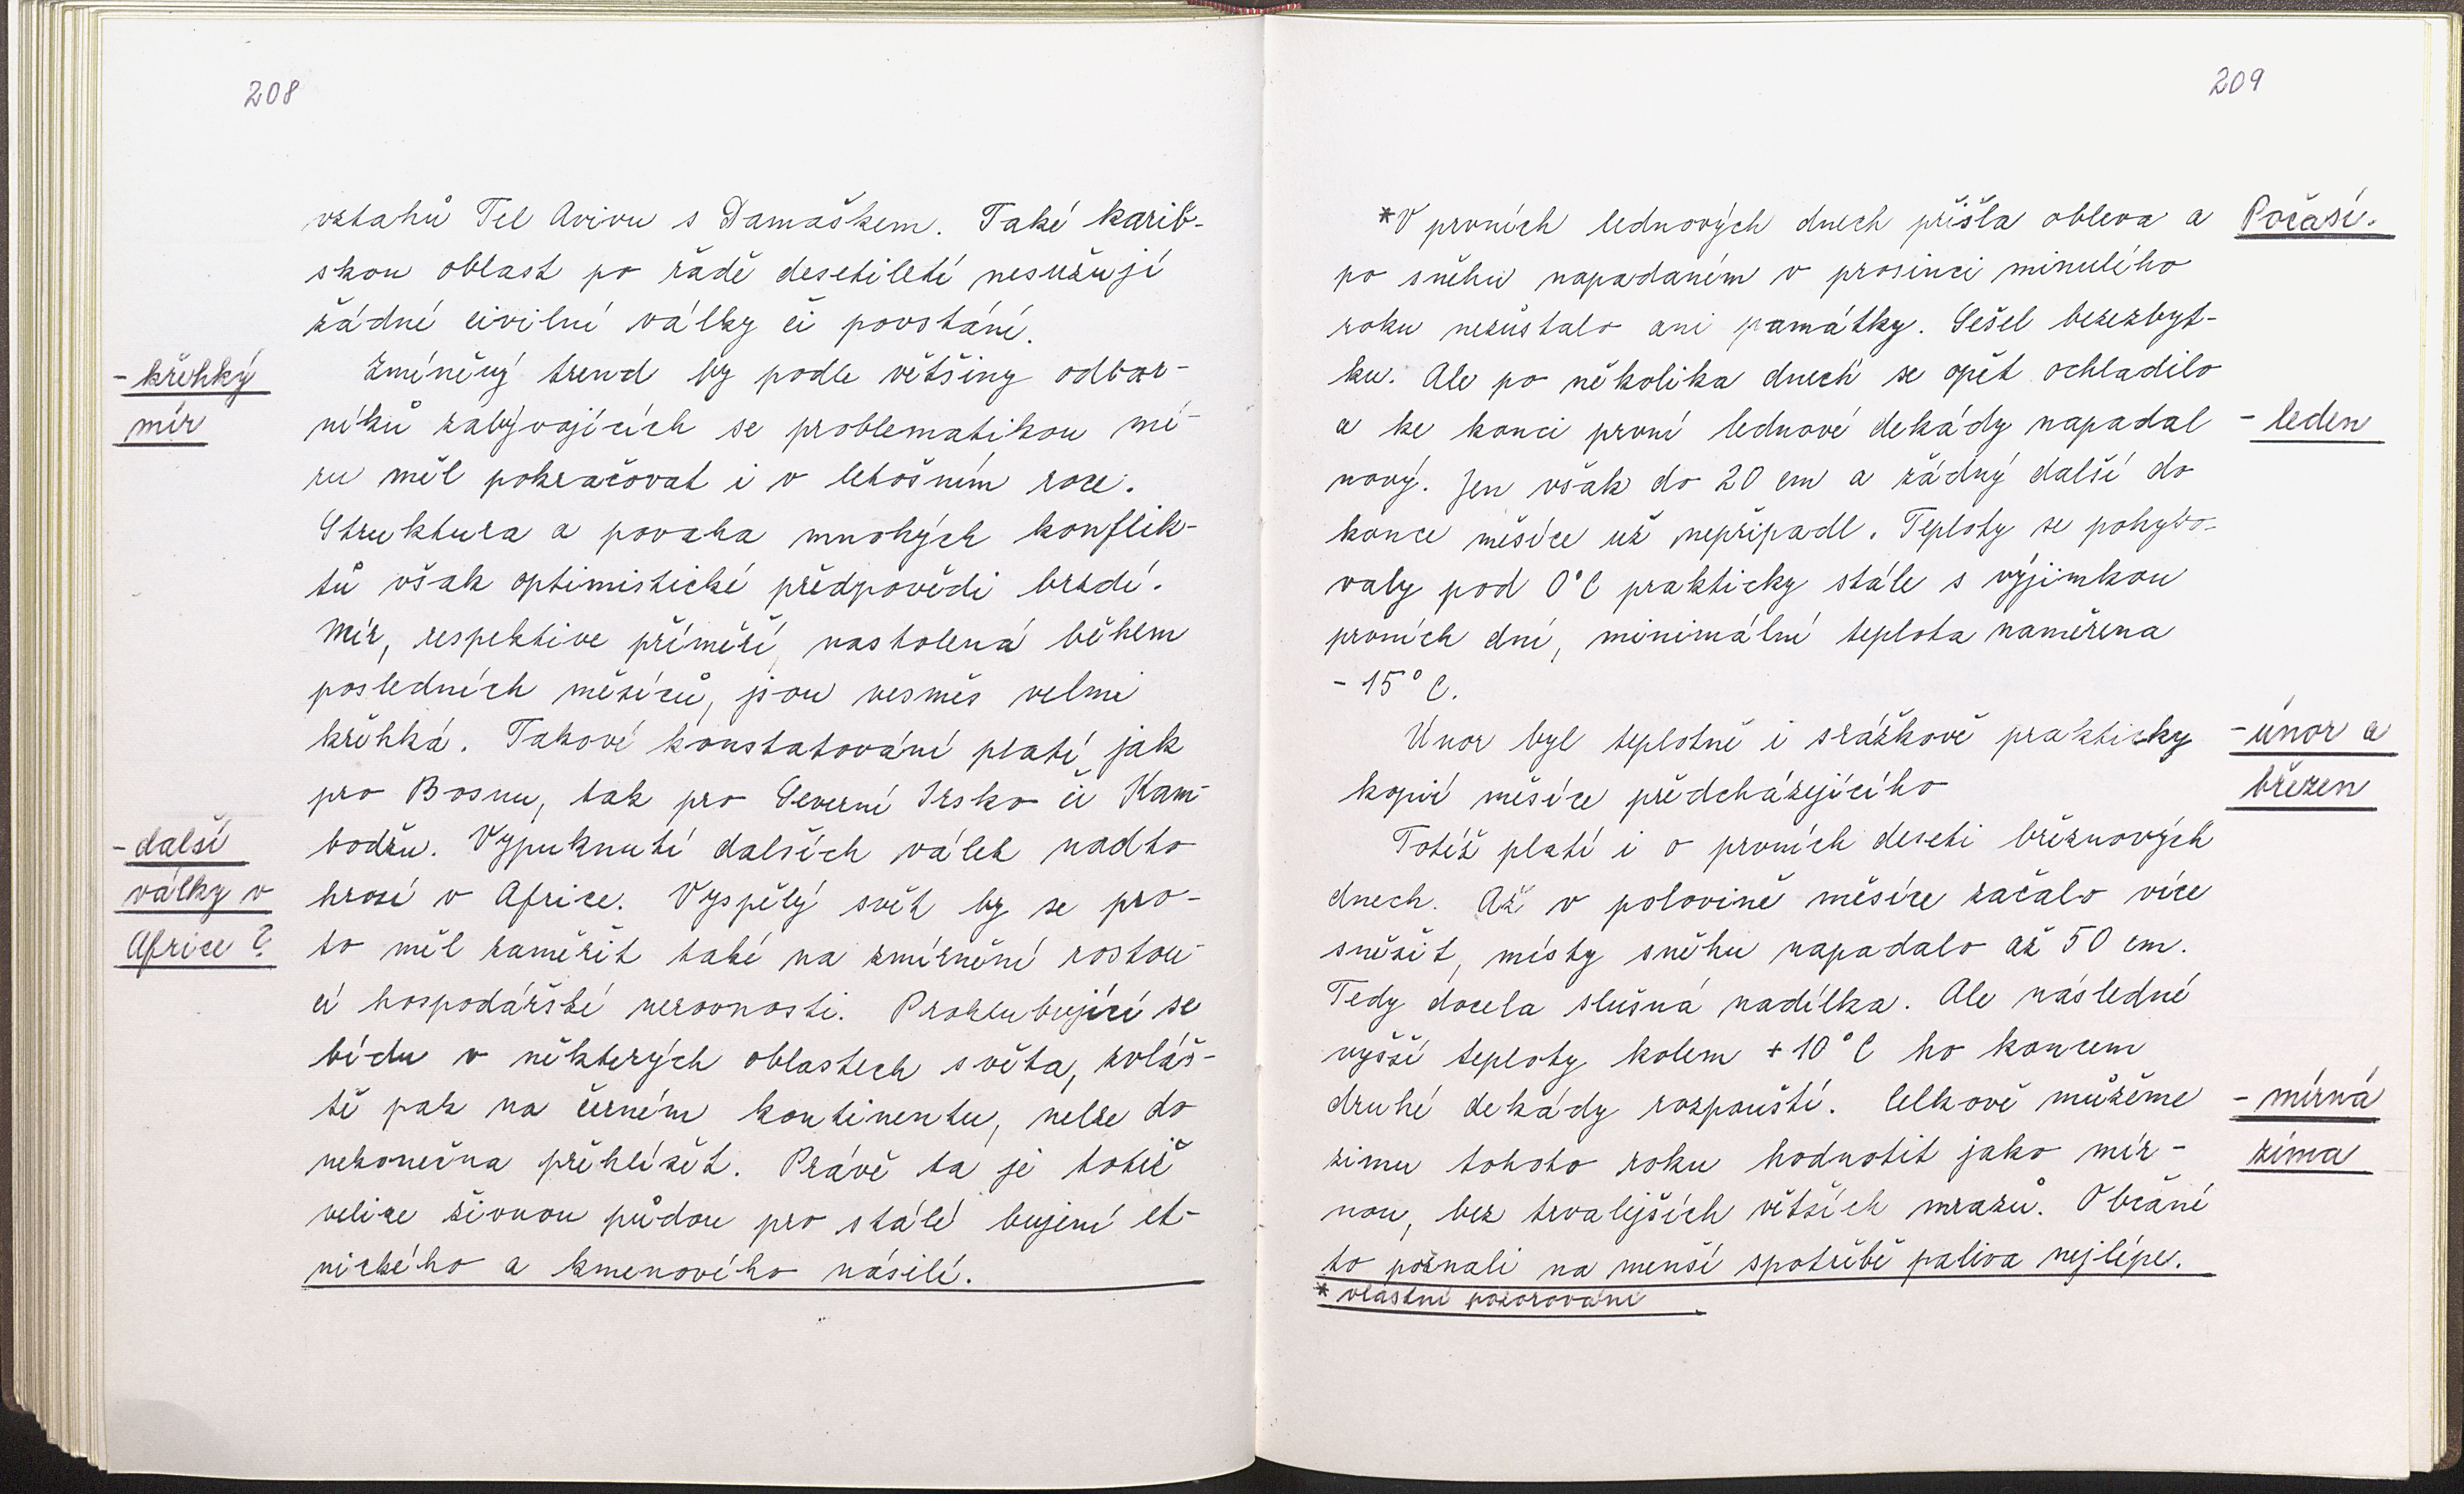 208
vztahů Tel Avivu s Damaškem. Také karib-
skou oblast po řadě desetiletí nesužují
žádné civilní války či povstání.
- křehký
mír
Zmíněný trend by podle většiny odbor-
níků zabývajících se problematikou mí-
ru měl pokračovat i v letošním roce.
Struktura a povaha mnohých konflik-
tů však optimistické předpovědi brzdí.
Mír, respektive příměří, nastolená během
posledních měsíců, jsou vesměs velmi
křehká. Takové konstatování platí jak
pro Bosnu, tak pro Severní Irsko či Kam-
bodžu. Vypuknutí dalších válek nadto
- další
války v
Africe?
hrozí v Africe. Vyspělý svět by se pro-
to měl zaměřit také na zmírnění rostou-
cí hospodářské nerovnosti. Prohlubující se
bídu v některých oblastech světa, zvláš-
tě pak na černém kontinentu, nelze do
nekonečna přehlížet. Právě ta je totiž
velice živnou půdou pro stálé bujení et-
nického a kmenového násilí.
209
*V prvních lednových dnech přišla obleva a
Počasí.
po sněhu napadaném v prosinci minulého
roku nezůstalo ani památky. Sešel bezezbyt-
ku. Ale po několika dnech se opět ochladilo
a ke konci první lednové dekády napadal
- leden
nový. Jen však do 20 cm a žádný další do
konce měsíce už nepřipadl. Teploty se pohybo-
valy pod 0°C prakticky stále s výjimkou
prvních dní, minimální teplota naměřena
- 15° C.
Únor byl teplotně i srážkově prakticky
- únor a
březen
kopií měsíce předcházejícího
Totéž platí i o prvních deseti březnových
dnech. Až v polovině měsíce začalo více
sněžit, místy sněhu napadalo až 50 cm.
Tedy docela slušná nadílka. Ale následné
vyšší teploty kolem + 10°C ho koncem
druhé dekády rozpouští. Celkově můžeme
- mírná
zima
zimu tohoto roku hodnotit jako mír-
nou, bez trvalejších větších mrazů. Občané
to poznali na menší spotřebě paliva nejlépe.
* vlastní pozorování